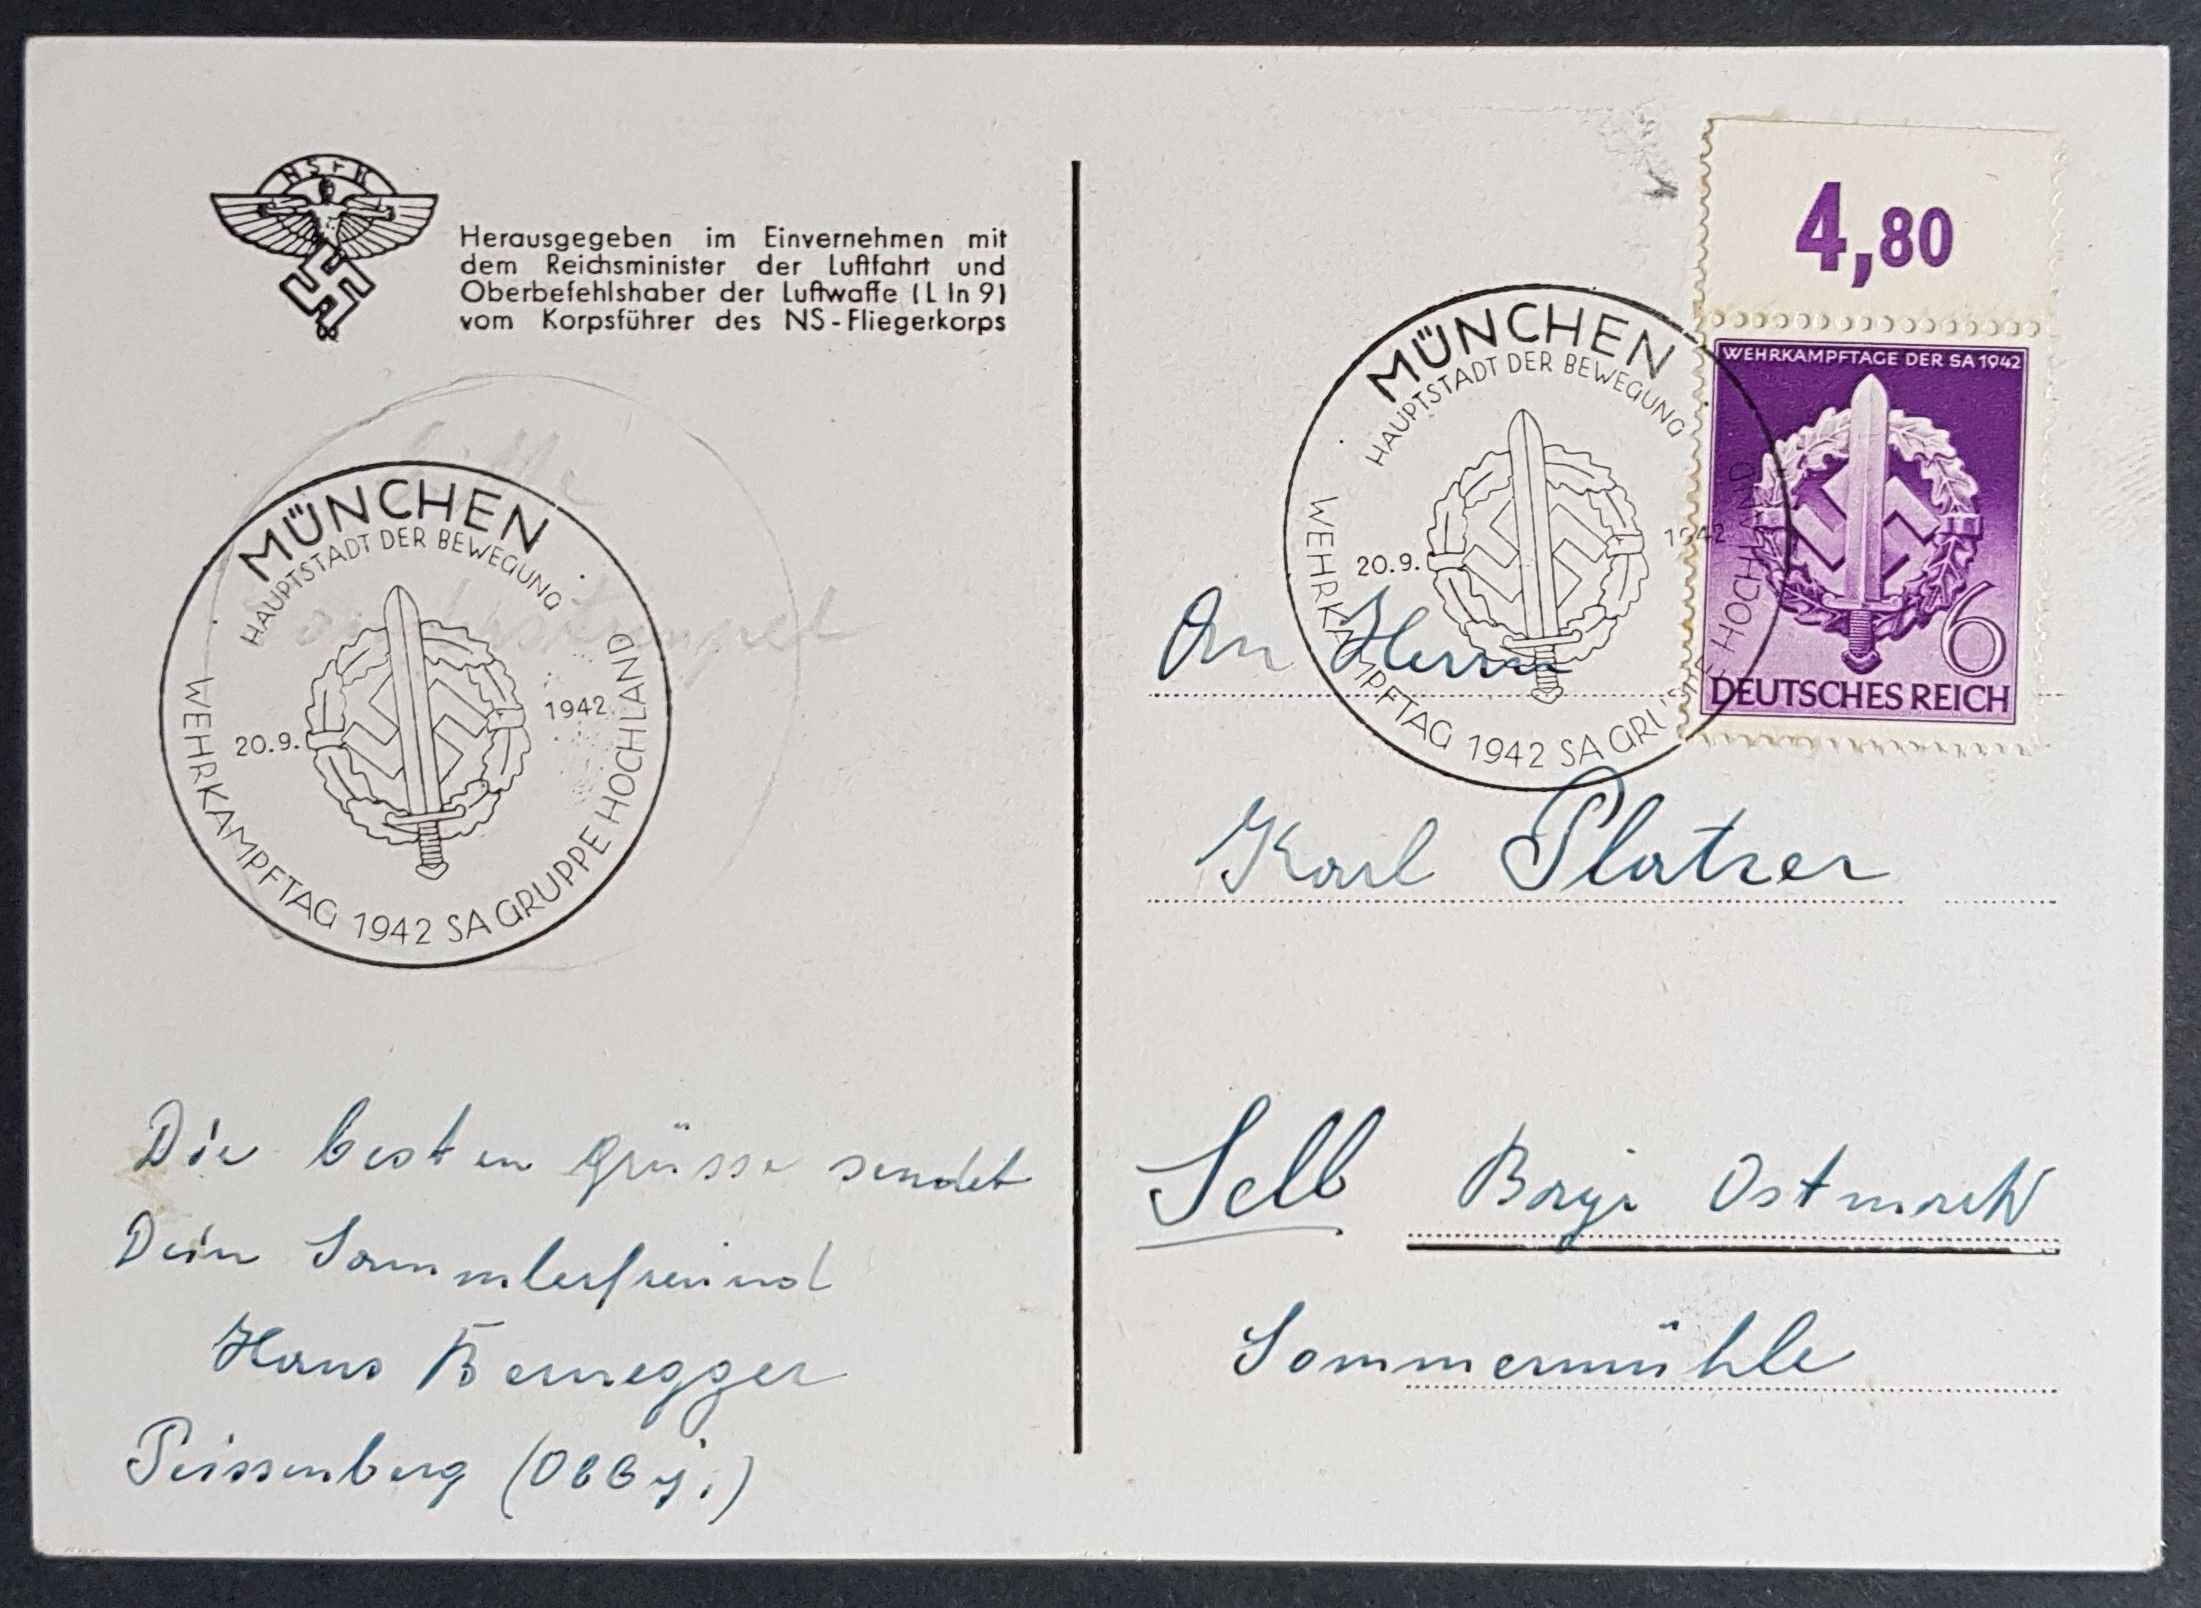 NSFK
Herausgegeben im Einvernehmen mit
dem Reichsminister der Luftfahrt und
Oberbefehlshaber der Luftwaffe (L In 9)
vom Korpsführer des NS-Fliegerkorps
MÜNCHEN
HAUPTSTADT DER BEWEGUNG
20.9. 1942
WEHRKAMPFTAG 1942 SA GRUPPE HOCHLAND
Die besten Grüsse sendet
Dein Sammlerfreund
Hans Bernegger
Peissenberg (Obby.)
4,80
WEHRKAMPFTAGE DER SA 1942
6
DEUTSCHES REICH
MÜNCHEN
HAUPTSTADT DER BEWEGUNG
20.9. 1942
WEHRKAMPFTAG 1942 SA GRUPPE HOCHLAND
An Herrn
Karl Platzer
Selb Bayr Ostmark
Sommermühle